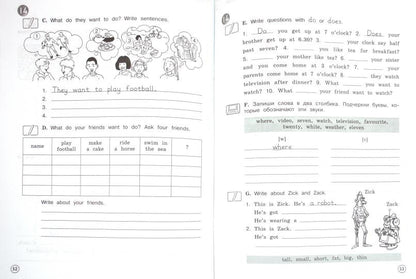 C. What do they want to do? Write sentences.
1. They want to play football.
2.
3.
4.
D. What do your friends want to do? Ask four friends.
name play football make a cake ride a horse swim in the sea ?
Write about your friends.
52
E. Write questions with do or does.
1. Do you get up at 7 o'clock? 2. Does your
brother get up at 6.30? 3. your clock say half
past seven? 4. you like tea for breakfast?
5. your mother like tea? 6. your sister
and you come home at 3 o'clock? 7. your
parents come home at 7 o'clock? 8. they watch
television after dinner? 9. What you want to
watch? 10. What your friend want to watch?
F. Запиши слова в два столбика. Подчеркни буквы, ко-
торые обозначают эти звуки.
where, video, seven, watch, television, favourite,
twenty, white, weather, eleven
[w] [v]
where
G. Write about Zick and Zack.
1. This is Zick. He's a robot.
He's got
He's wearing a
2. This is Zack.
He's got
Zick
Zack
tall, small, short, fat, big, thin
53